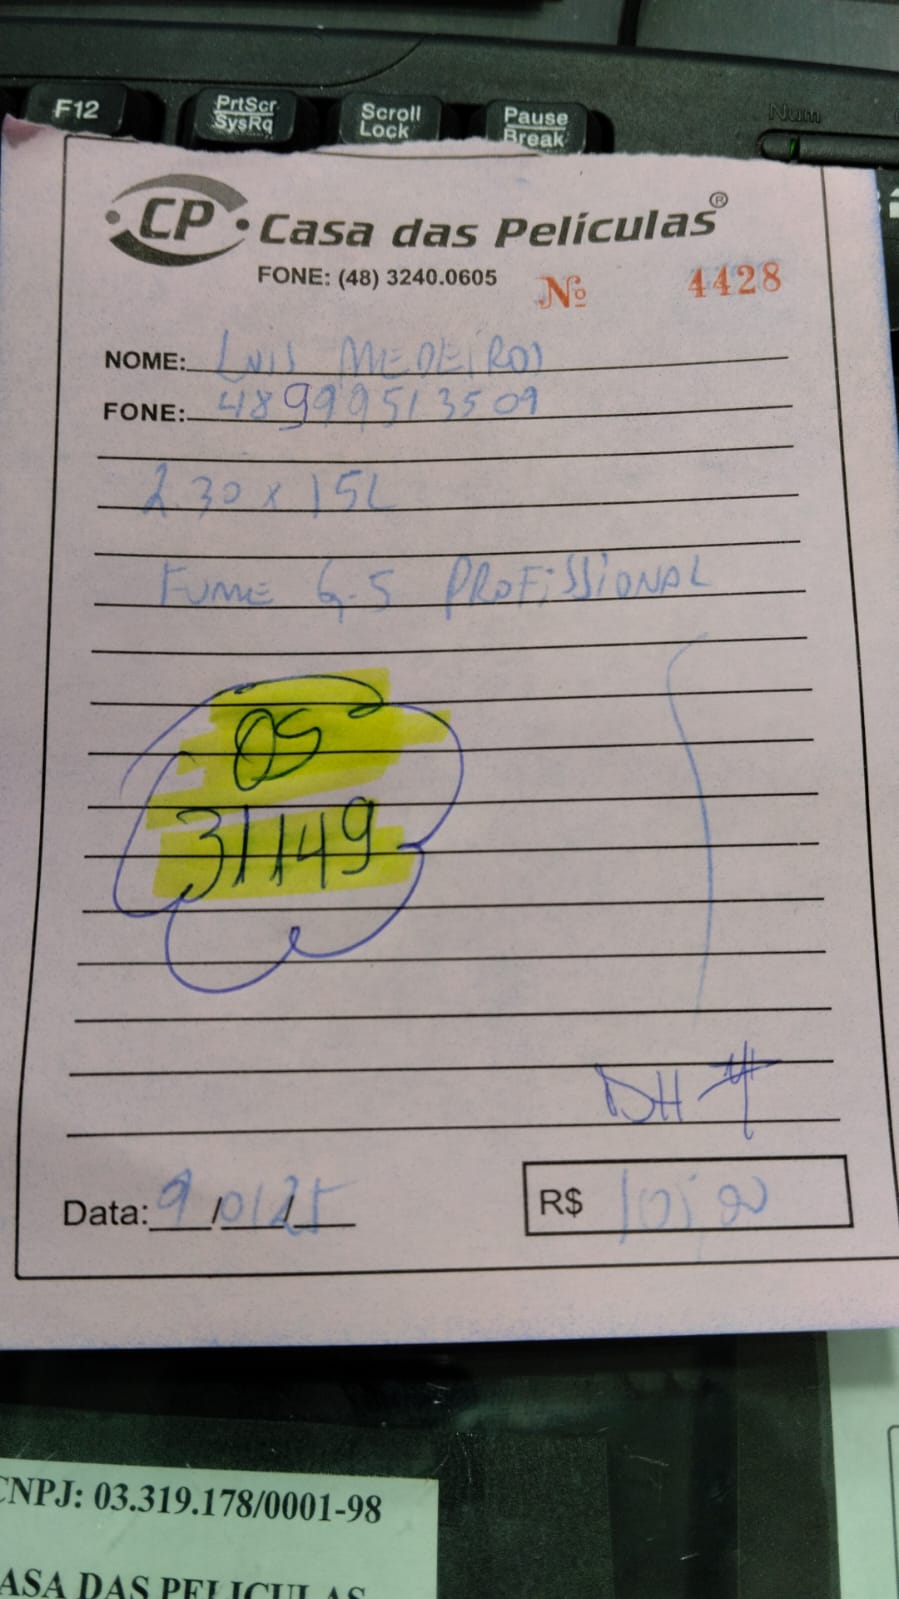 F12
PrtScr
SysRq
Scroll
Lock
Pause
Break
Num
CP Casa das Películas®
FONE: (48) 3240.0605 Nº 4428
NOME: LUIS MEDEIROS
FONE: 48999513509
2.30 x 1.52
FUME G-5 PROFISSIONAL
OS
31149
DH
Data: 9/01/25 R$
CNPJ: 03.319.178/0001-98
ASA DAS PELICULAS